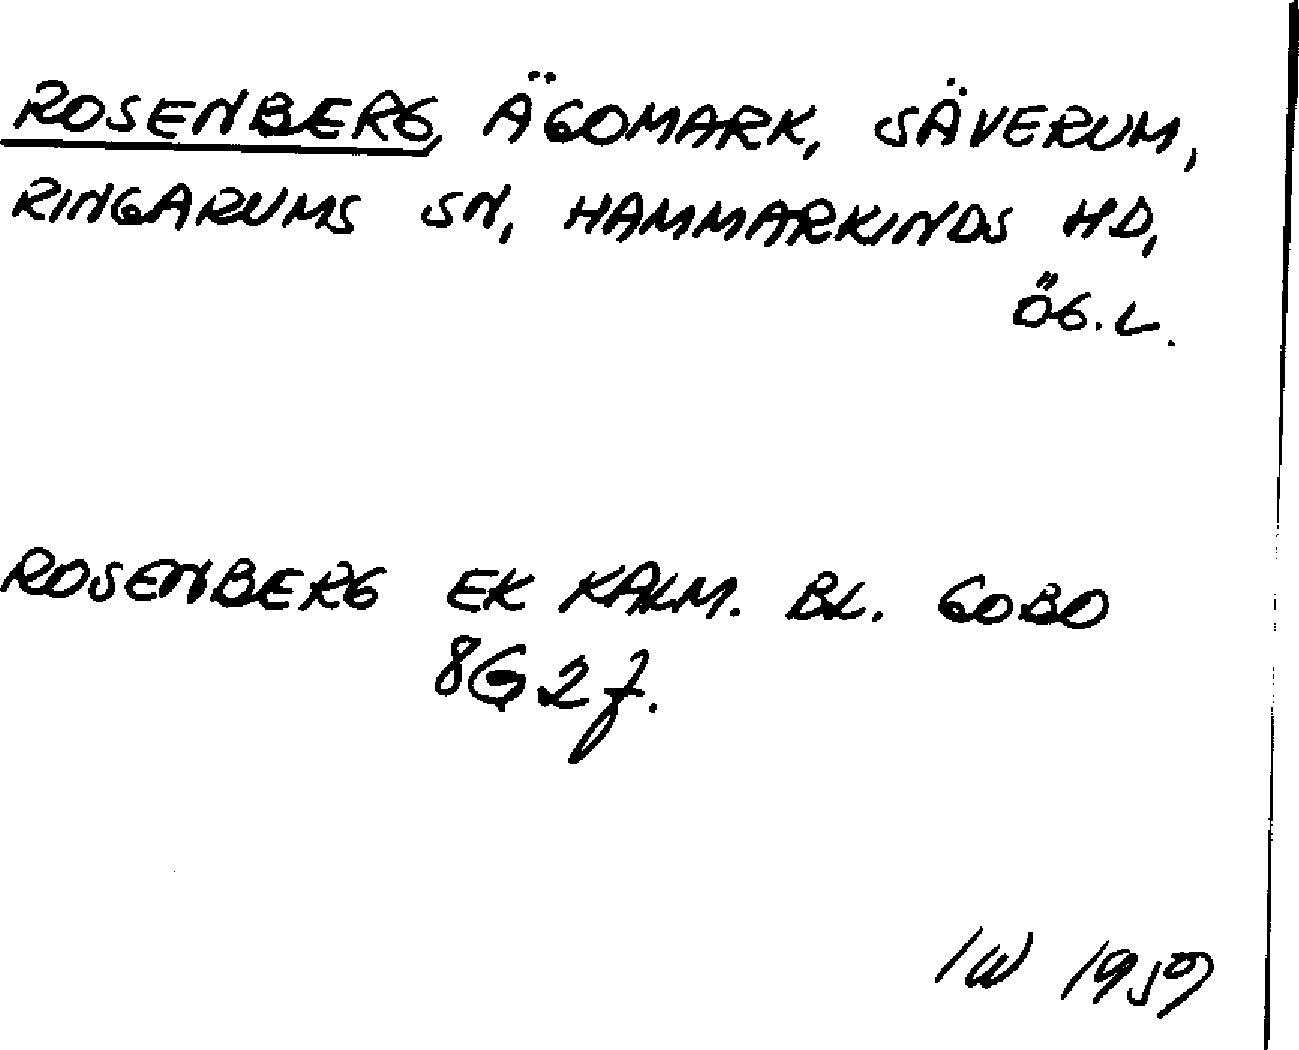 ROSENBERG, ÄGOMARK, SÄVERUM,
RINGARUMS SN, HAMMARKINDS HD,
ÖG.L.
ROSENBERG EK KALM. BL. GOBO
8G2f.
IW 1959